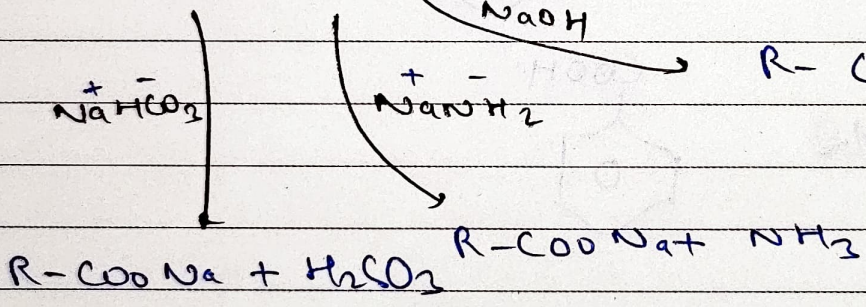 NaOH
R- C
Na⁺HCO₃⁻
Na⁺NH₂⁻
R-COONa + NH₃
R-COONa + H₂SO₃